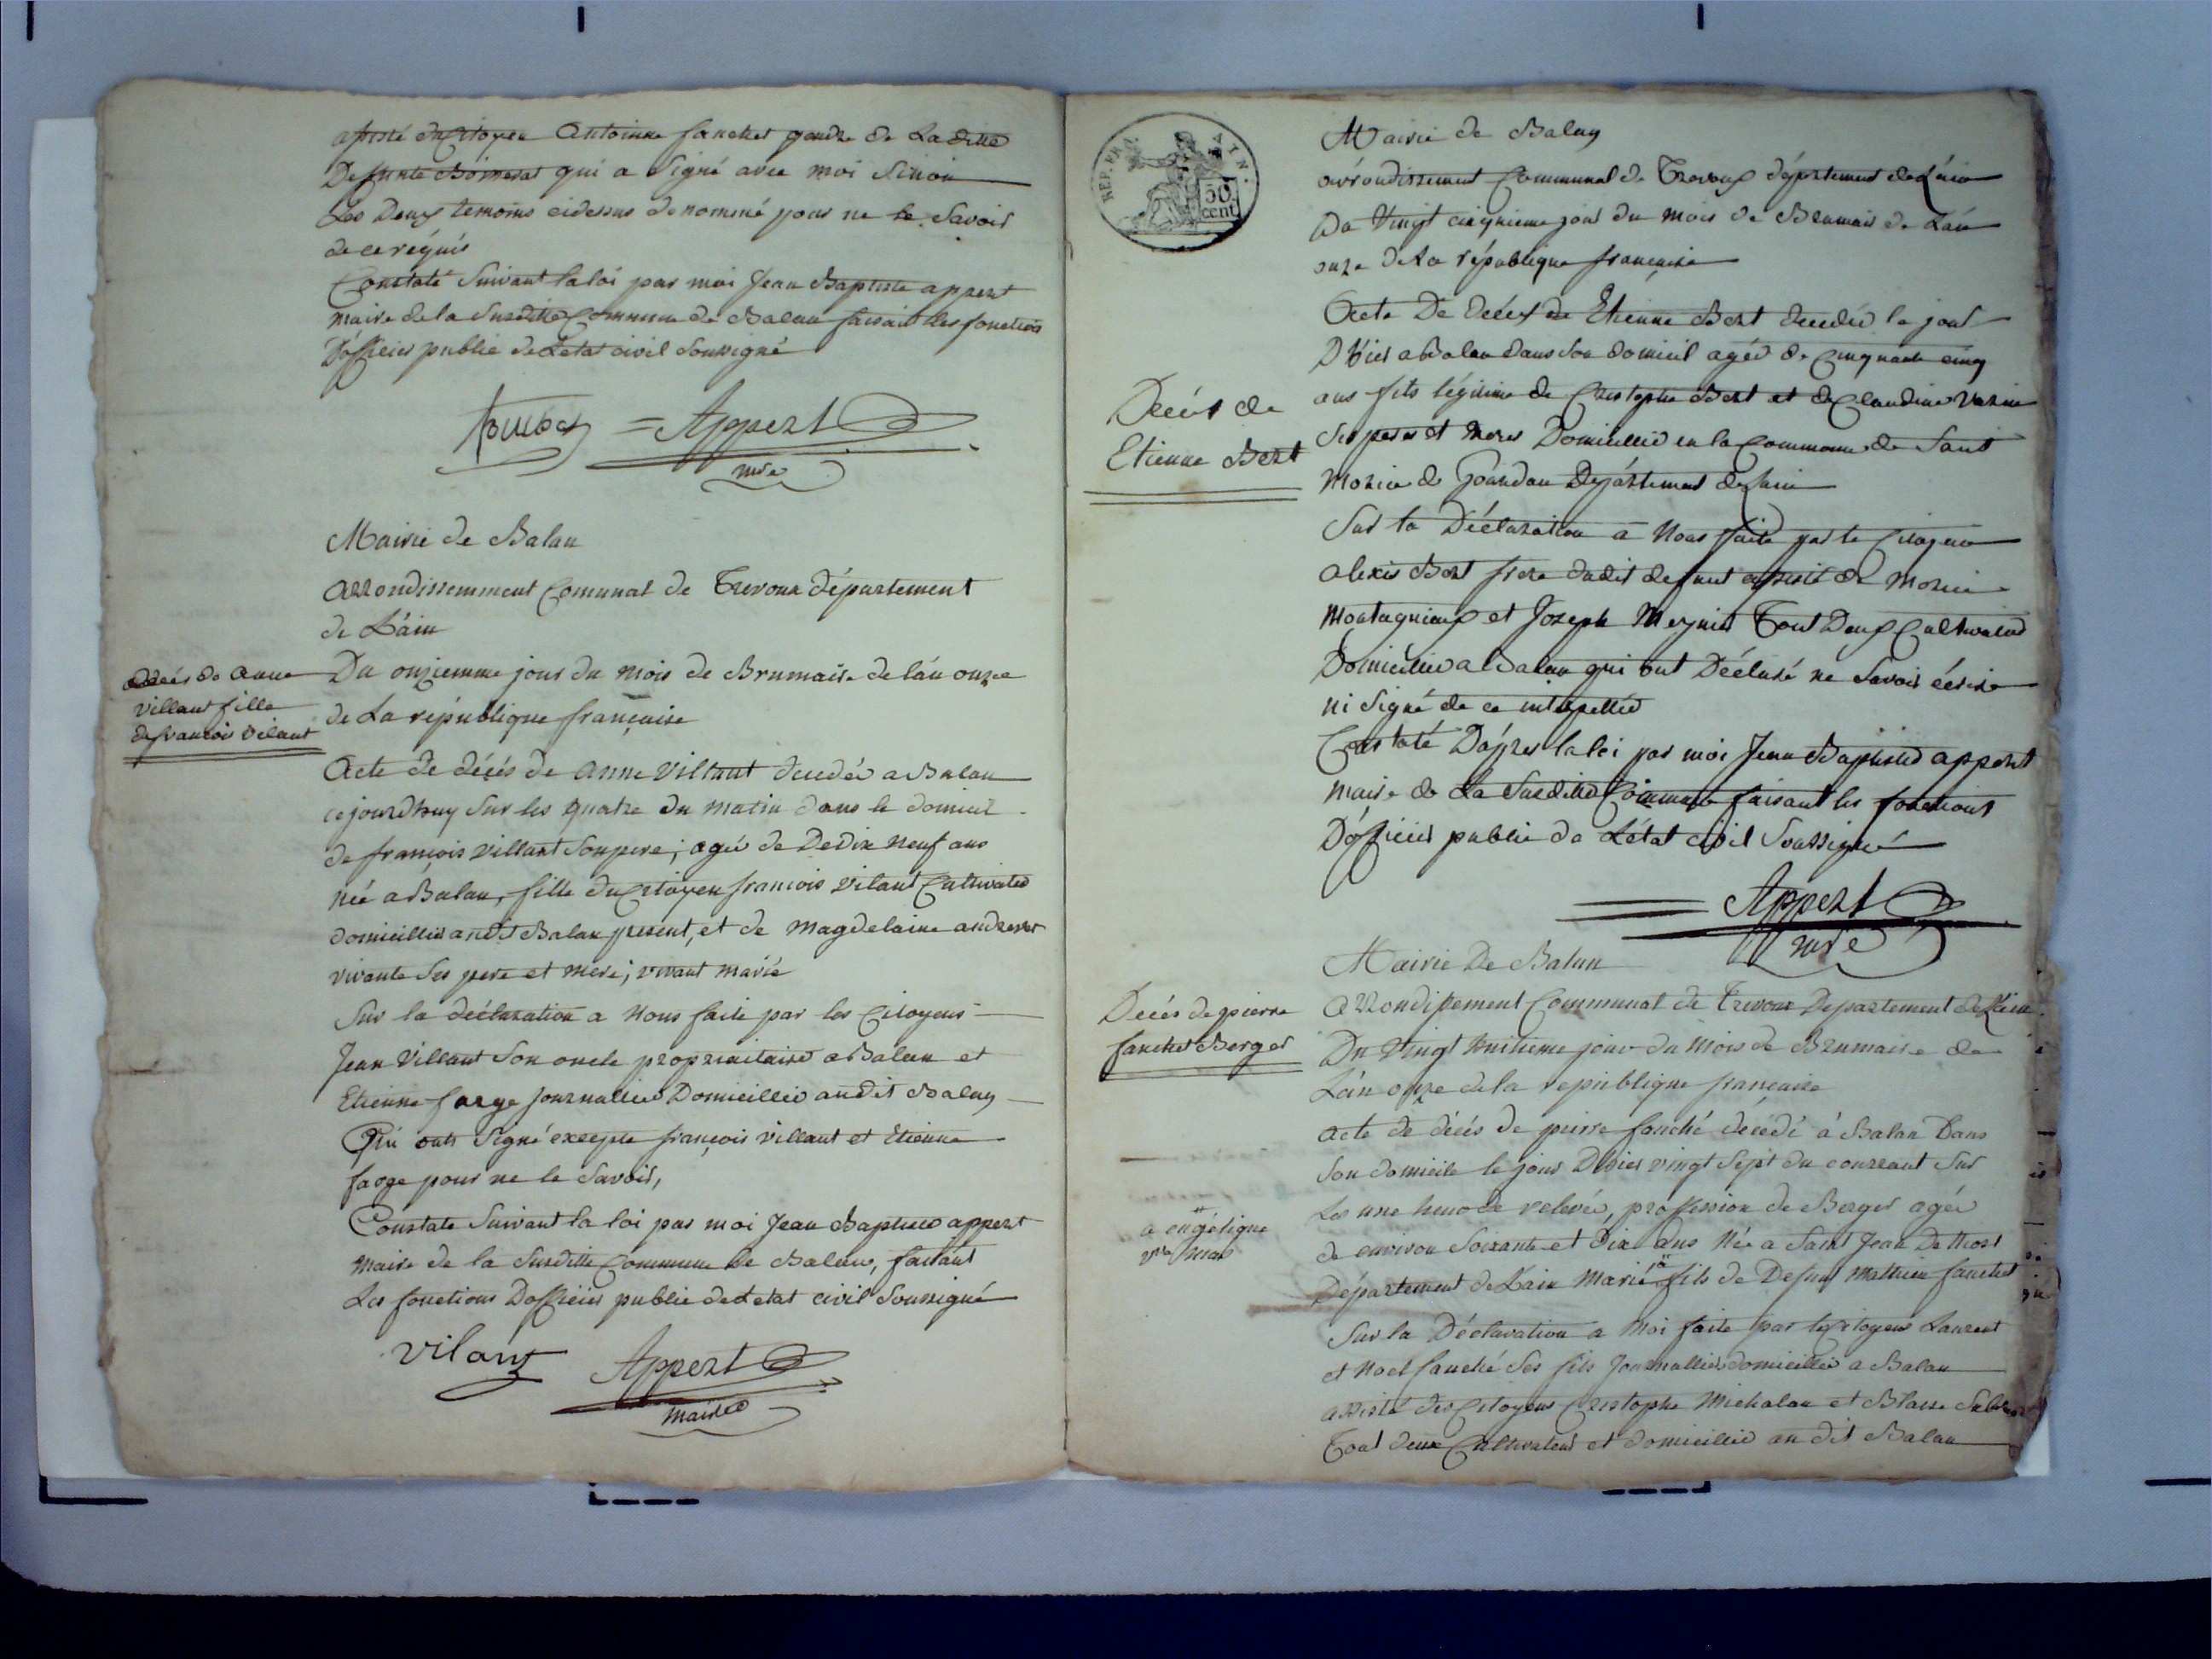 assisté du Citoyen Antoinne fanchet gendre de La ditte
Defunte qui a Signé avec moi Sinon
Les Deux temoins cidessus denommé pour ne le Savoir
de ce réquis
Constaté Suivant la loi par moi Jean Baptiste appert
maire de la Susditte Commune de Balan faisant les fonctions
D'officier public de Letat civil Soussigné
= Appert
mre
Mairie de Balan
arrondissemment Comunal de Trevoux département
de L'ain
décés de Anne
villant fille
de francois vilant
Du onziemme jour du mois de Brumaire de lán onze
de La république française
Acte de décés de Anne Villant decedée a Balan
cejourdhuy Sur les quatre du matin dans le domicil
de françois villant Son pere ; agée de De Dix neuf ans
née a Balan, fille du Citoyen francois vilant Cultivateur
domicillié audit Balan present, et de Magdelaine
vivante Ses pere et mere ; vivant marié
Sur la déclaration a Nous faite par les Citoyens
Jean Villant Son oncle propriaitaire a Balan et
Etienne farge journallier Domicillié audit Balan
Qui onts Signé excepte françois villant et Etienne
farge pour ne le Savoir,
Constate Suivant la loi par moi Jean Baptiste appert
maire de la Susditte Commune de Balan, faisant
Les fonctions Dofficier public de Letat civil Soussigné
vilant Appert
maire
REP. FRA. AIN.
50
cent
Mairie de Balan
arrondissement Communal de Trevoux département de L'ain
Du Vingt cinquieme jour du mois de Brumair de L'an
onze de La république française
Décés de
Etienne Bert
Acte De Décés de Etienne Bert decedé le jour
D'hier a Balan dans Son domicil agée de Cinquante cinq
ans fils légitime de Cristophe Bert et de Claudine
Ses peres et meres Domicillié en la Commune de Saint
Morice de Gourdan Département de Lain
Sur la Déclaration a Nous faite par le Citoyen
alexis Bert frere dudit defunt assisté de Morice
Montagnieux et Jozeph Meynier Tout Deux Cultivateur
Domicillié a Balan qui ont Déclaré ne Savoir écrire
ni Signé de ce intepellé
Constaté D'aprer la loi par moi Jean Baptiste appert
maire de La Susditte Commune faisant les fonctions
D'officier public de L'état civil Soussigné
Appert
mre
Mairie De Balan
Décés de pierre
fanchet Berger
arrondissement Communal de Trevoux Departement de L'ain
Du Vingt huitieme jour du Mois de Brumaire de
L'an onze de la republique française
acte de décés de pierre fanché decedé à Balan Dans
Son domicile le jour D'hier vingt Sept du courrant Sur
Les une heure de relevée, proffession de Berger agée
de environ Soixante et Dix ans Née a Saint Jean De Niost
Département de L'ain Marié # fils de Defunt Mathieu fanchet
#
a engélique
mas
Sur la Déclaration a Moi faite par les Citoyens Laurent
et Noel fanché Ses fils Journallier domicillié a Balan
assisté des Citoyens Cristophe Michalan et Blaise
Tout deux Cultivateur et domicillié au dit Balan